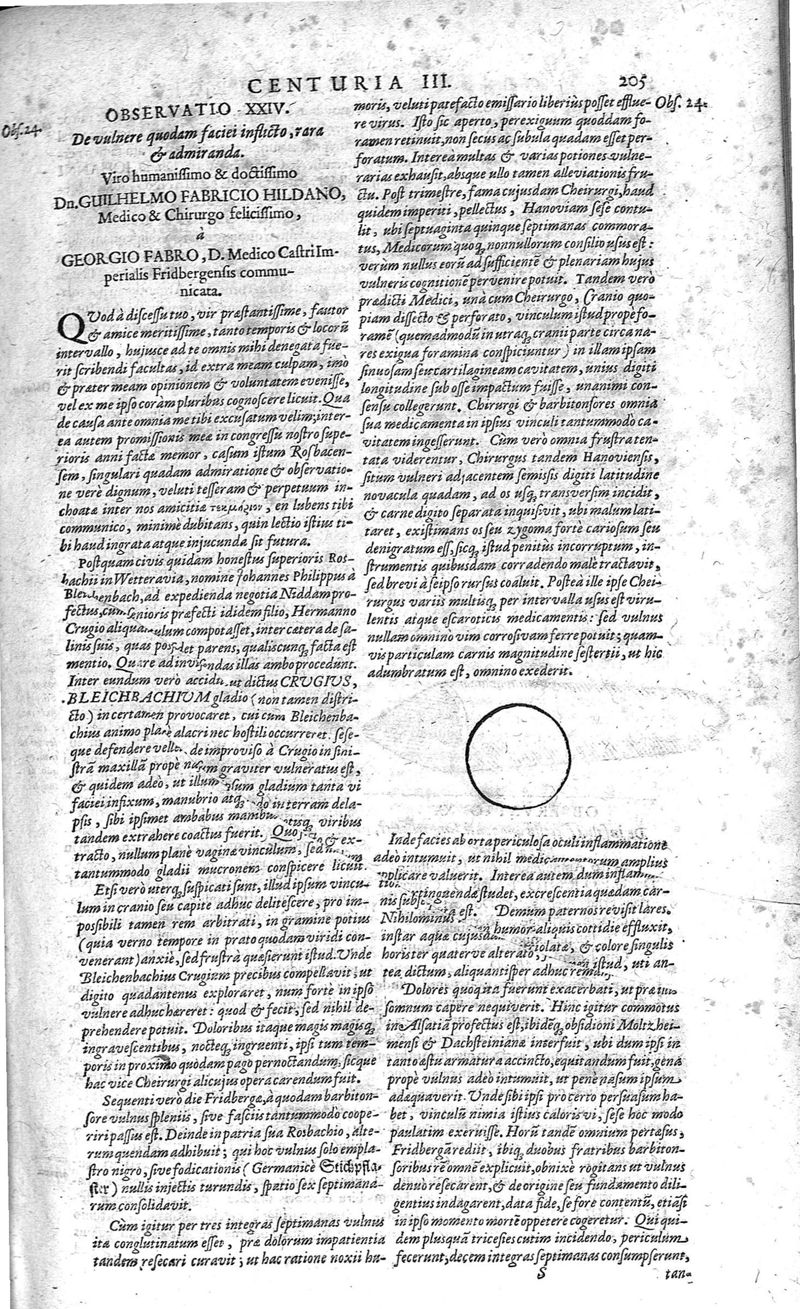 CENTURIA III. 205
OBSERVATIO XXIV.
Obs. 24.
De vulnere quodam faciei inflicto, rara
& admiranda.
Viro humanissimo & doctissimo
Dn. GUILHELMO FABRICIO HILDANO,
Medico & Chirurgo felicissimo,
à
GEORGIO FABRO, D. Medico Castri Im-
perialis Fridbergensis commu-
nicata.
QVod à discessu tuo, vir præstantissime, fautor
& amice meritissime, tanto temporis & locorũ
intervallo, hujusce ad te omnis mihi denegata fue-
rit scribendi facultas, id extra meam culpam, imò
& præter meam opinionem & voluntatem evenisse,
vel ex me ipso coràm pluribus cognoscere licuit. Qua
de causa ante omnia me tibi excusatum velim; inter-
ea autem promissionis meæ in congressu nostro supe-
rioris anni factæ memor, casum istum Rosbacen-
sem, singulari quadam admiratione & observatio-
ne verè dignum, veluti tesseram & perpetuum in-
choatæ inter nos amicitiæ τεκμήριον, en lubens tibi
communico, minimè dubitans, quin lectio istius ti-
bi haud ingrata atque injucunda sit futura.
Postquam civis quidam honestus superioris Ros-
bachii in Wetteravia, nomine Johannes Philippus à
Bleichenbach, ad expedienda negotia Niddam pro-
fectus, cum senioris præfecti ididem filio, Hermanno
Crugio aliquantulum compotasset, inter cætera de sa-
linis suis, quas possidet parens, qualiscunq; facta est
mentio. Quare ad invisendas illas ambo procedunt.
Inter eundum verò accidit, ut dictus CRUGIUS,
BLEICHBACHIUM gladio (non tamen distri-
cto) in certamen provocaret, cui cum Bleichenba-
chius animo planè alacri nec hostili occurreret, sese-
que defendere vellet, de improviso à Crugio in sini-
strã maxillã propè nasum graviter vulneratus est,
& quidem adeò, ut illum ipsum gladium tanta vi
faciei infixum, manubrio atq; in terram dela-
psis, sibi ipsimet ambabus manibus viribus
tandem extrahere coactus fuerit. Quo & ex-
tracto, nullum planè vaginæ vinculum, sed
tantummodo gladii mucronem conspicere licuit.
Etsi verò uterq; suspicati sunt, illud ipsum vincu-
lum in cranio seu capite adhuc delitescere, pro im-
possibili tamen rem arbitrati, in gramine potius
(quia verno tempore in prato quodam viridi con-
venerant) anxiè, sed frustrà quæsierunt istud. Unde
Bleichenbachius Crugium precibus compellavit, ut
digito quadantenus exploraret, num fortè in ipso
vulnere adhuc hæreret: quod & fecit, sed nihil de-
prehendere potuit. Doloribus itaque magis magisq;
ingravescentibus, nocteq; ingruenti, ipsi tum tem-
poris in proximo quodam pago pernoctandum, sicque
hac vice Cheirurgi alicujus opera carendum fuit.
Sequenti verò die Fridbergæ, à quodam barbiton-
sore vulnus spleniis, sive fasciis tantummodo coope-
riri passus est. Deinde in patria sua Rosbachio, alte-
rum quendam adhibuit; qui hoc vulnus solo empla-
stro nigro, sive fodicationis (Germanicè Stichpfla-
ster) nullis injectis turundis, spatio sex septimana-
rum consolidavit.
Cùm igitur per tres integras septimanas vulnus
ita conglutinatum esset, præ dolorum impatientia
tandem resecari curavit; ut hac ratione noxii hu-
moris, veluti patefacto emissario liberiùs posset efflue-
re virus. Isto sic aperto, perexiguum quoddam fo-
ramen retinuit, non secus ac subula quadam esset per-
foratum. Interea multas & varias potiones vulne-
rarias exhausit, absque ullo tamen alleviationis fru-
ctu. Post trimestre, fama cujusdam Cheirurgi, haud
quidem imperiti, pellectus, Hanoviam sese contu-
lit, ubi septuaginta quinque septimanas commora-
tus, Medicorum quoq; nonnullorum consilio usus est:
verùm nullus eorũ ad sufficientẽ & plenariam hujus
vulneris cognitionẽ pervenire potuit. Tandem verò
prædicti Medici, unà cum Cheirurgo, Cranio quo-
piam dissecto & perforato, vinculum istud propè fo-
ramẽ (quemadmodũ in utraq; cranii parte circa na-
res exigua foramina conspiciuntur) in illam ipsam
sinuosam seu cartilagineam cavitatem, unius digiti
longitudine sub osse impactum fuisse, unanimi con-
sensu collegerunt. Chirurgi & barbitonsores omnia
sua medicamenta in ipsius vinculi tantummodò ca-
vitatem ingesserunt. Cùm verò omnia frustra ten-
tata viderentur, Chirurgus tandem Hanoviensis,
situm vulneri adjacentem semissis digiti latitudine
novacula quadam, ad os usq; transversim incidit,
& carne digito separata inquisivit, ubi malum lati-
taret, existimans os seu zygoma fortè cariosum seu
denigratum esse, sicq; istud penitùs incorruptum, in-
strumentis quibusdam corradendo malè tractavit,
sed brevi à seipso rursus coaluit. Postea ille ipse Chei-
rurgus variis multisq; per intervalla usus est viru-
lentis atque escaroticis medicamentis: sed vulnus
nullam omnino vim corrosivam ferre potuit; quam-
vis particulam carnis magnitudine sestertii, ut hic
adumbratum est, omnino exederit.
Obs. 24.
Inde facies aborta periculosa oculi inflammatione
adeò intumuit, ut nihil medicamentorum amplius
applicare valuerit. Interea autem dum inflam-
tioni extinguendæ studet, excrescentia quædam car-
nis est. Demum paternos revisit lares.
Nihilominus humor aliquis cottidie effluxit,
instar aquæ cujusdam violatæ, & colore singulis
horis ter quaterve alterato, istud, uti an-
tea dictum, aliquantisper adhuc
Dolores quoq; ita fuerunt exacerbati, ut præ iis
somnum capere nequiverit. Hinc igitur commotus
in Alsatiã profectus est, ibidẽq; obsidioni Moltzhei-
mensi & Dachsteinianæ interfuit, ubi dum ipsi in
tanto æstu armatura accincto, equitandum fuit, gena
propè vulnus adeò intumuit, ut penè nasum ipsum
adæquaverit. Unde sibi ipsi pro certo persuasum ha-
bet, vinculũ nimia istius caloris vi, sese hoc modo
paulatim exeruisse. Horũ tandẽ omnium pertæsus,
Fridbergã rediit, ibiq; duobus fratribus barbiton-
soribus rẽ omnẽ explicuit, obnixè rogitans ut vulnus
denuò resecarent, & de origine seu fundamento dili-
gentius indagarent, data fide, se fore contentũ, etiãsi
in ipso momento mortẽ oppetere cogeretur. Qui qui-
dem plusquã tricesies cutim incidendo, periculum
fecerunt, decem integras septimanas consumpserunt,
S tan-